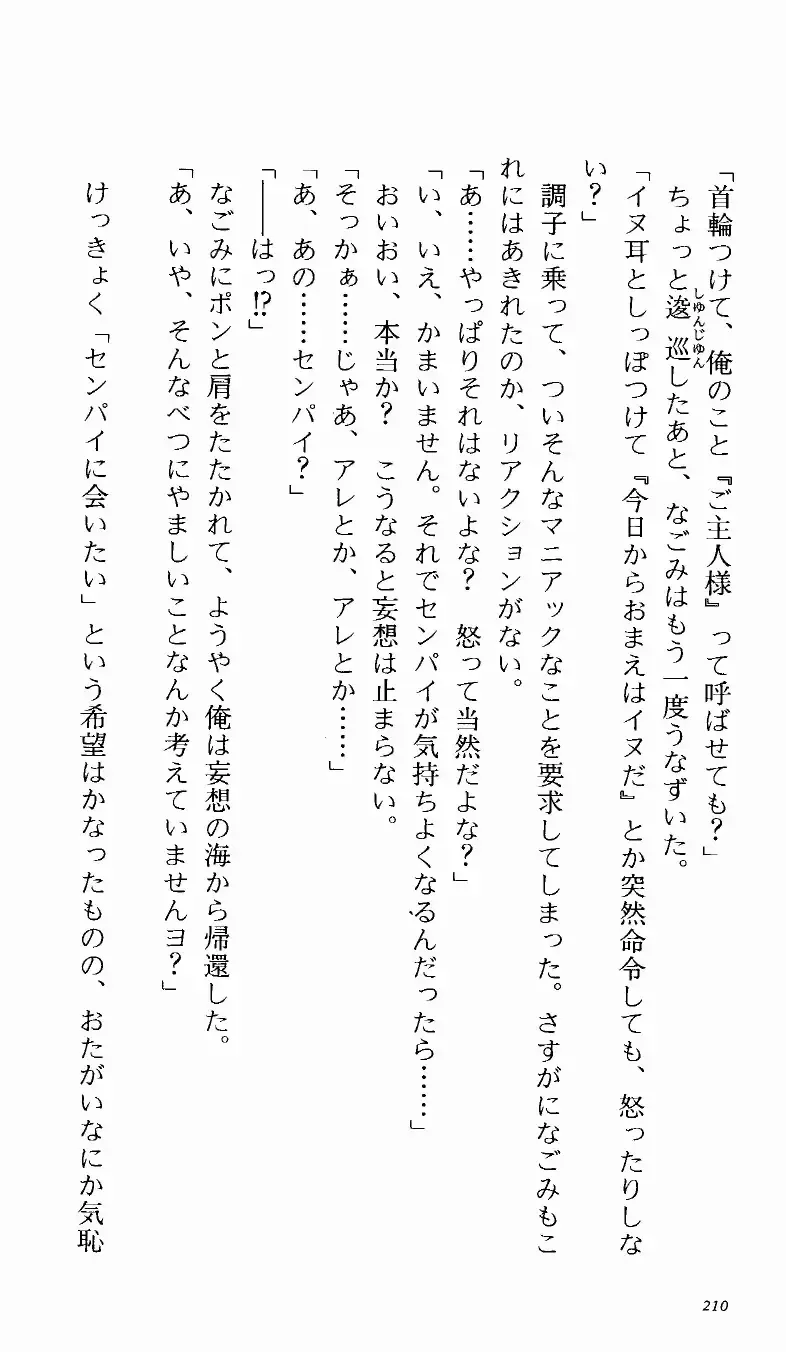 「首輪つけて、俺のこと『ご主人様』って呼ばせても？」
ちょっと逡巡したあと、なごみはもう一度うなずいた。
しゅんじゅん
「イヌ耳としっぽつけて『今日からおまえはイヌだ』とか突然命令しても、怒ったりしな
い？」
調子に乗って、ついそんなマニアックなことを要求してしまった。さすがになごみもこ
れにはあきれたのか、リアクションがない。
「あ……やっぱりそれはないよな？　怒って当然だよな？」
「い、いえ、かまいません。それでセンパイが気持ちよくなるんだったら……」
おいおい、本当か？　こうなると妄想は止まらない。
「そっかぁ……じゃあ、アレとか、アレとか……」
「あ、あの……センパイ？」
「――はっ!?」
なごみにポンと肩をたたかれて、ようやく俺は妄想の海から帰還した。
「あ、いや、そんなべつにやましいことなんか考えていませんヨ？」
けっきょく「センパイに会いたい」という希望はかなったものの、おたがいなにか気恥
210